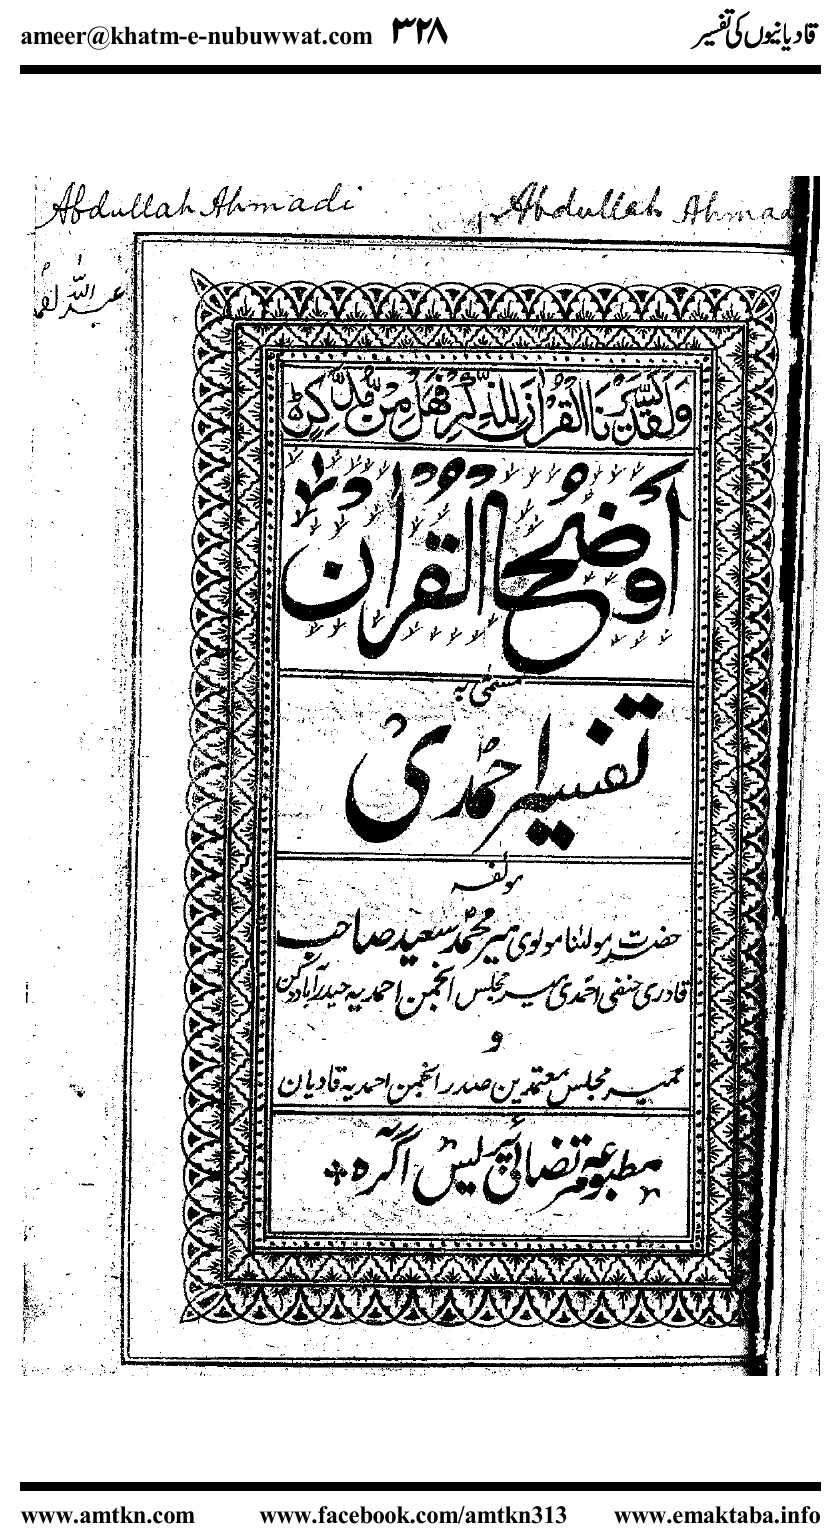 ameer@khatm-e-nubuwwat.com ۳۲۸ قادیانیوں کی تفسیر
Abdullah Ahmadi Abdullah Ahmad
عبد اللہ
وَلَقَدْ يَسَّرْنَا الْقُرْآنَ لِلذِّكْرِ فَهَلْ مِنْ مُّدَّكِرٍ
اَوضحُ القرآن
مسمّٰی بہ
تفسیر احمدی
مولفہ
حضرت مولٰنا مولوی میر محمد سعید صاحب
قادری حنفی احمدی میر مجلس انجمن احمدیہ حیدرآباد دکن
و
ممبر مجلس معتمدین صدر انجمن احمدیہ قادیان
مطبوعہ مرتضائی پریس آگرہ
www.amtkn.com www.facebook.com/amtkn313 www.emaktaba.info